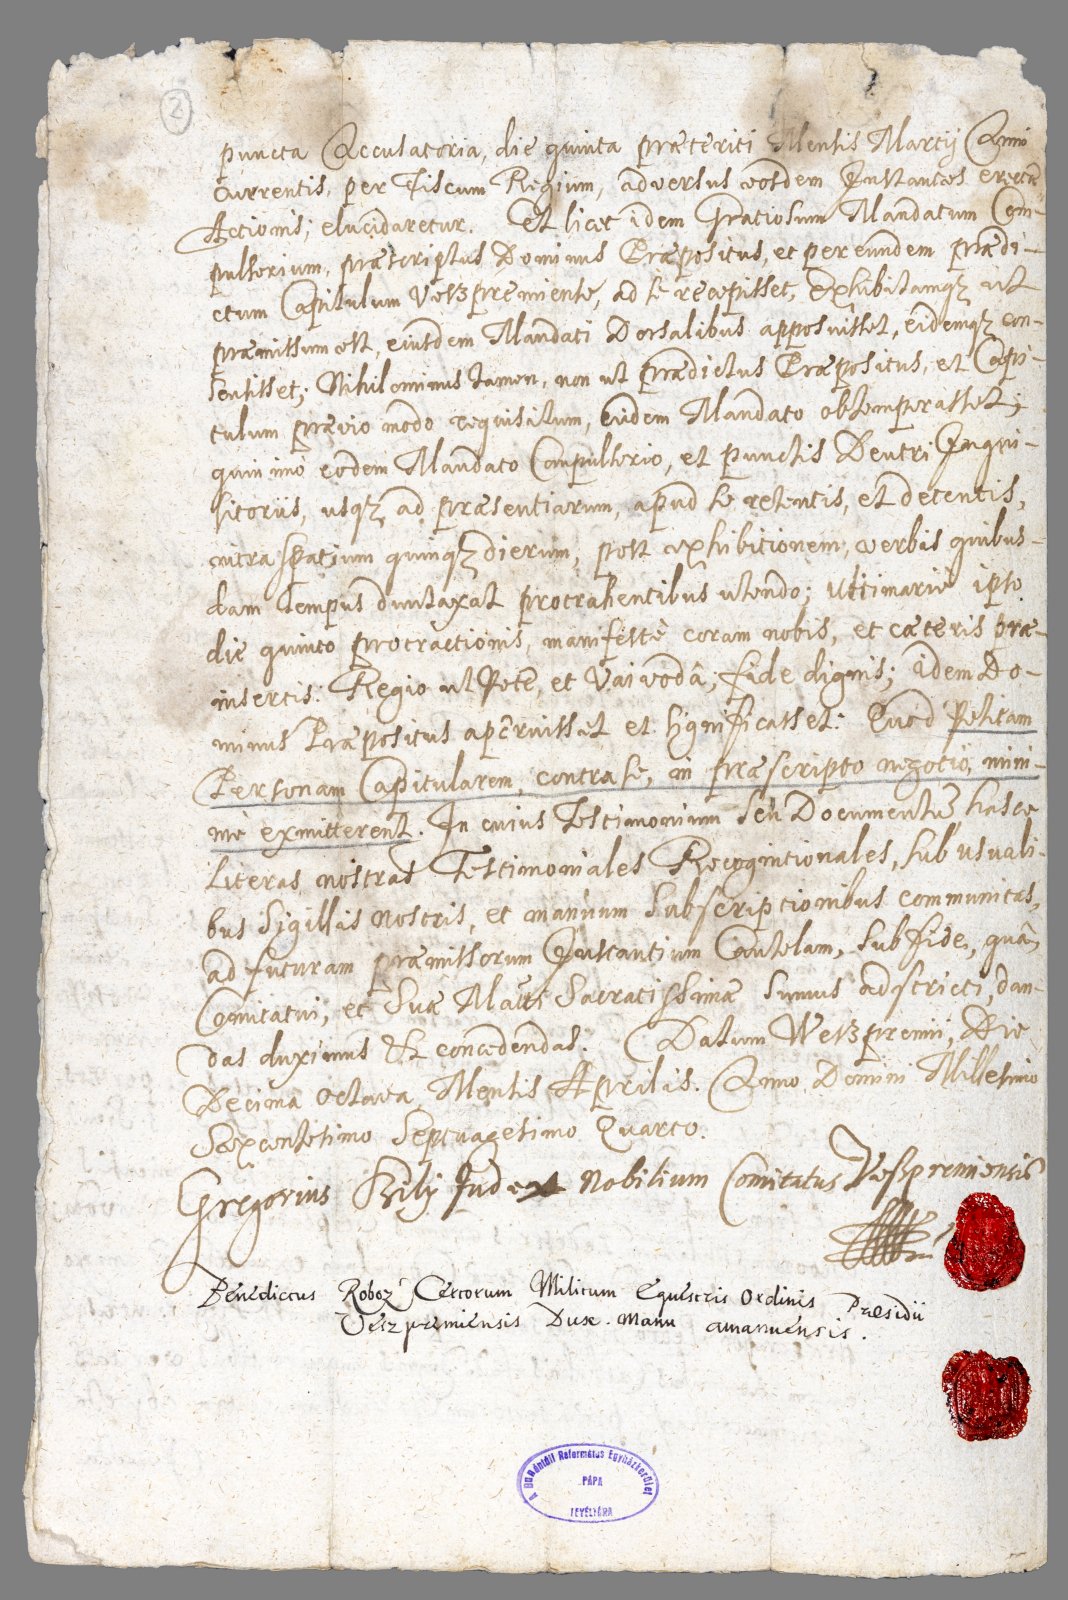 2
puncta Accusatoria, die quinta præteriti Mensis Martij Anni
Currentis, per Fiscum Regium, adversus eosdem Instantes erectæ
Actionis; elucidaretur. Et licet idem Gratiosum Mandatum Com-
pulsorium, præscriptus Dominus Præpositus, et per eundem prædi-
ctum Capitulum Veszpremiense, ad se recepisset, Exhibitamqz ut
præmissum est, eiusdem Mandati Dorsalibus apposuisset, eidemqz con-
sensisset; Nihilominus tamen, non ut prædictus Præpositus, et Capi-
tulum prævio modo requisitum, eidem Mandato obtemperasset;
quin imò eodem Mandato Compulsorio, et punctis Deutri Inqui-
sitoriis, usqz ad præsentiarum, apud se retentis, et detentis,
intra spatium quinqz dierum, post exhibitionem, verbis quibus-
dam tempus duntaxat protrahentibus utendo; Ultimariè ipso
die quinto protractionis, manifestè coram nobis, et cæteris præ-
insertis: Regio ut Potè, et Vaivodâ; fide dignis; idem Do-
minus Præpositus aperuisset et significasset: Quod Petitam
Personam Capitularem, contra se, in præscripto negotio, mini-
mè exmitterent. In cuius Testimonium seù Documentũ hasce
Literas nostras Testimoniales Recognitionales, sub usuali-
bus Sigillis nostris, et manuum Subscriptionibus communitas,
ad futuram præmissorum Instantium Cautelam, sub fide, quâ
Comitatui, et Suæ Mattis Sacratissimæ sumus adscricti, dan-
das duximus et concedendas. Datum Weszpremii, Die
Decima Octava Mensis Aprilis. Anno Domini Millesimo
Sexcentesimo Septuagesimo Quarto.
Gregorius Szily Judex Nobilium Comitatus Veszpremiensis
Benedictus Roboz Certorum Militum Equestris Ordinis Præsidii
Veszpremiensis Dux. Manu amanuensis.
A Dunántúli Református Egyházkerület
PÁPA
LEVÉLTÁRA